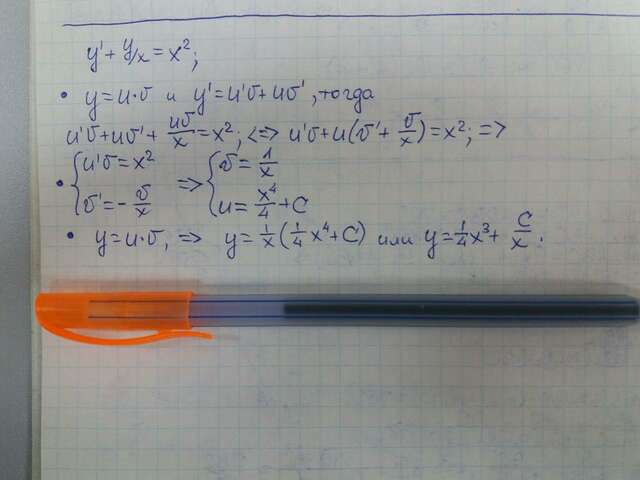 y' + y/x = x²;
• y = u·v и y' = u'v + uv', тогда
u'v + uv' + uv/x = x²; <=> u'v + u(v' + v/x) = x²; =>
• { u'v = x² => { v = 1/x
v' = -v/x u = x⁴/4 + C
• y = u·v, => y = 1/x (1/4 x⁴ + C) или y = 1/4 x³ + C/x.